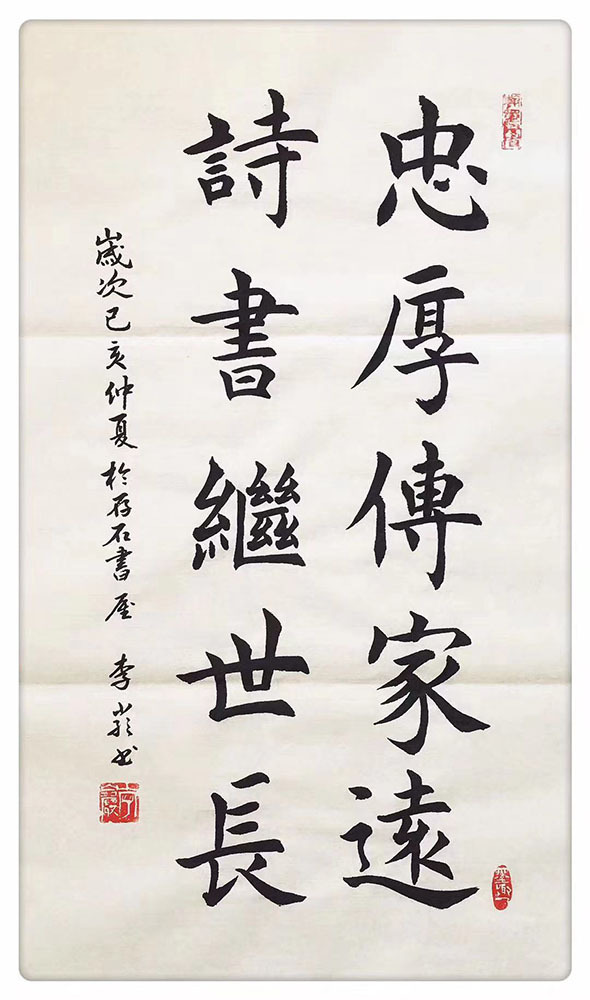 忠厚傳家遠
詩書繼世長
歲次己亥仲夏於存石書屋 李巖书